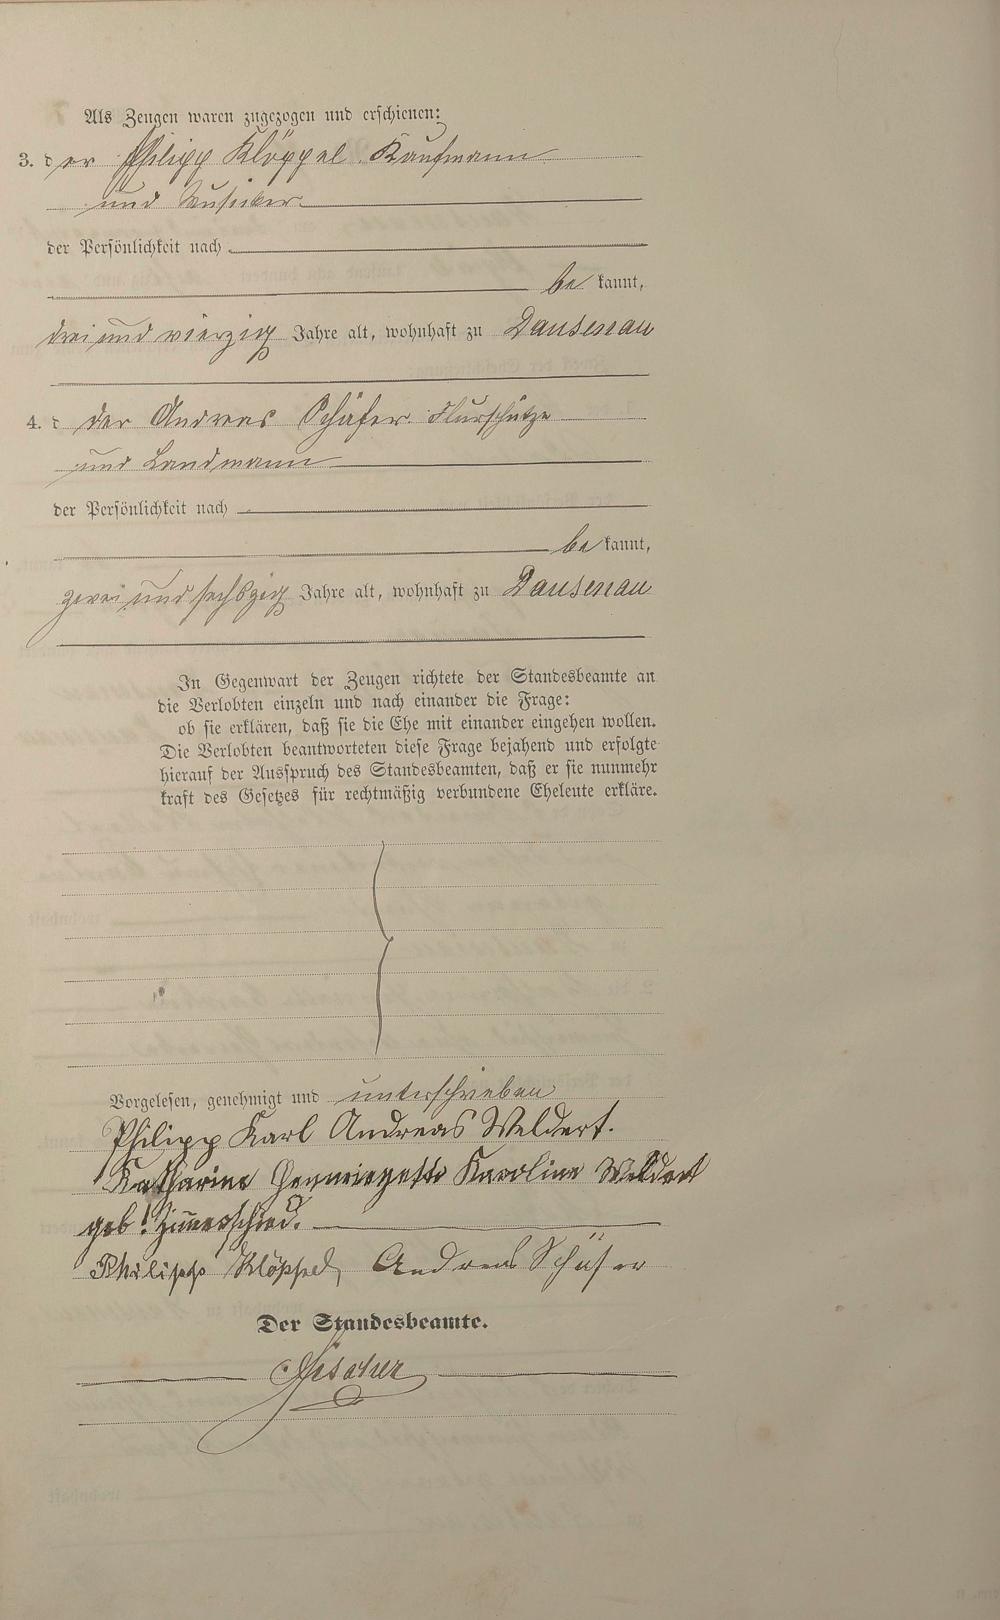 Als Zeugen waren zugezogen und erschienen:
3. der Philipp Klöppel. Kaufmann
und Musiker.
der Persönlichkeit nach
be kannt,
drei und vierzig Jahre alt, wohnhaft zu Dausenau
4. der Andreas Schäfer. Flurschütze
und Landmann
der Persönlichkeit nach
be kannt,
zwei und sechszig Jahre alt, wohnhaft zu Dausenau
In Gegenwart der Zeugen richtete der Standesbeamte an
die Verlobten einzeln und nach einander die Frage:
ob sie erklären, daß sie die Ehe mit einander eingehen wollen.
Die Verlobten beantworteten diese Frage bejahend und erfolgte
hierauf der Ausspruch des Standesbeamten, daß er sie nunmehr
kraft des Gesetzes für rechtmäßig verbundene Eheleute erkläre.
Vorgelesen, genehmigt und unterschrieben
Philipp Karl Andreas Weldert.
Katharine Karoline Weldert
geb. Zimmerschied.
Philipp Klöppel, Andreas Schäfer
Der Standesbeamte.
Fischer